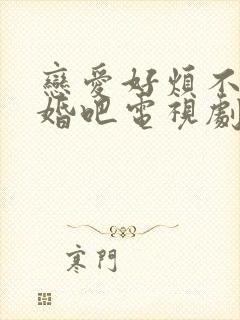 戀愛好煩不
婚吧電視劇
寒門